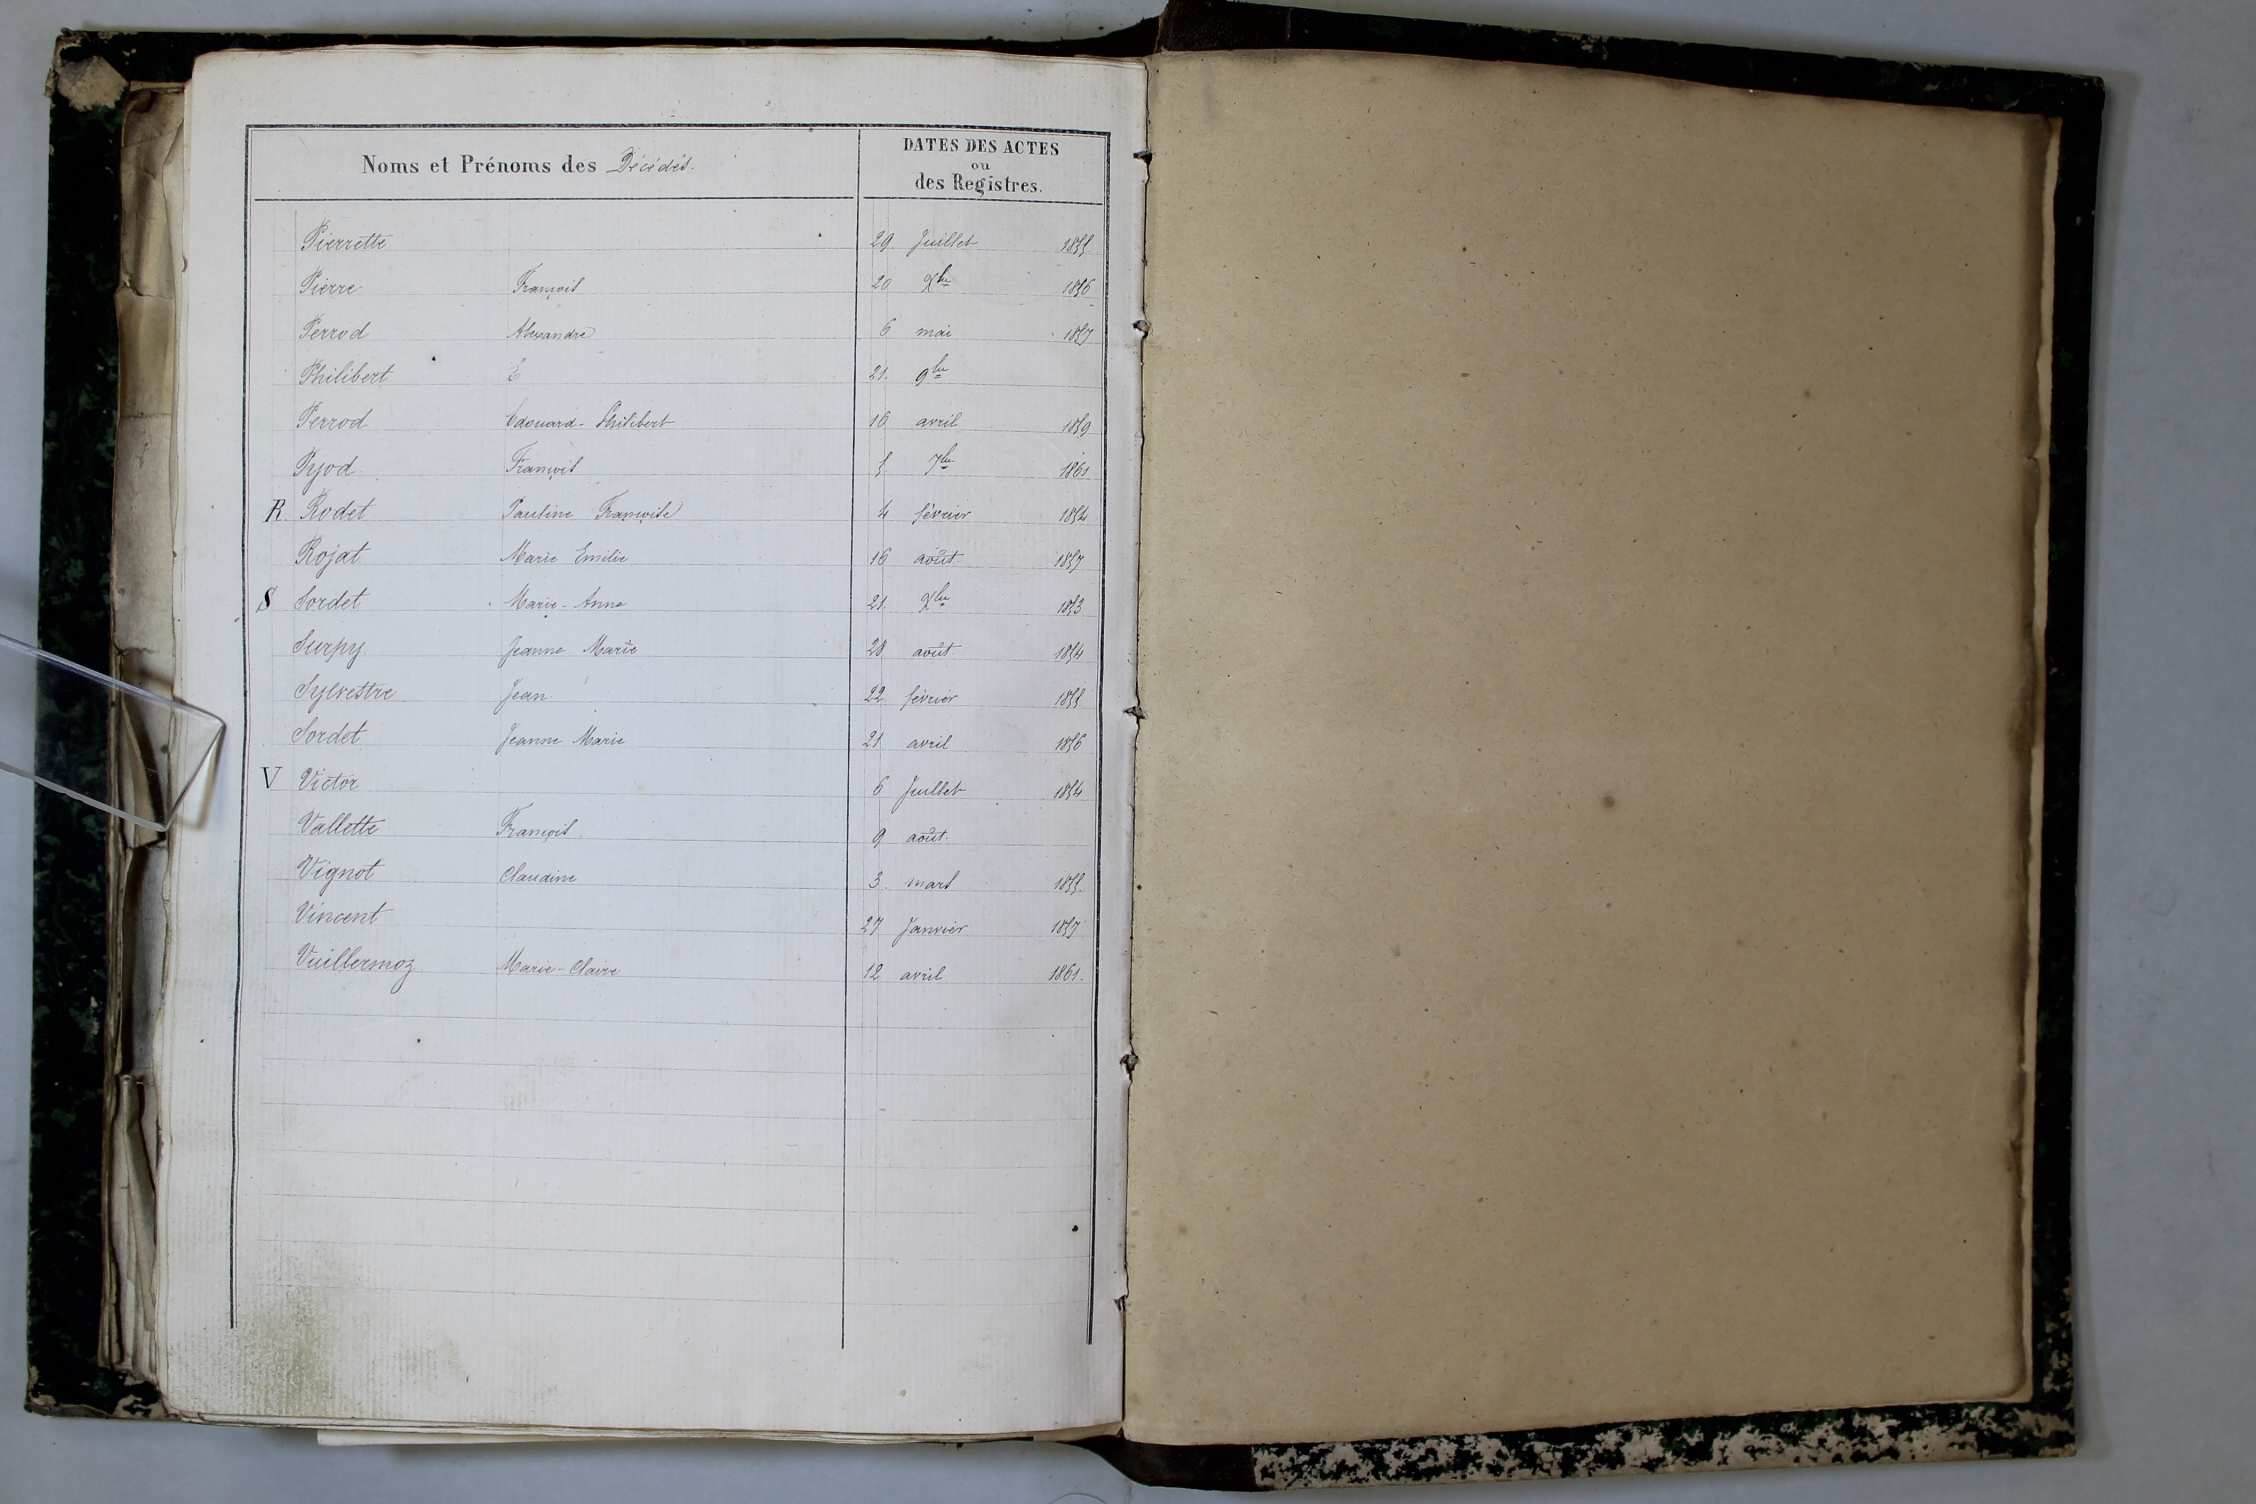 Noms et Prénoms des Décédés.
DATES DES ACTES
ou
des Registres.
Pierrette 29 Juillet 1855
Pierre François 20 Xbre 1856
Perrod Alexandre 6 mai 1857
Philibert 21. 9bre
Perrod Edouard-Philibert 16 avril 1859
Pyod François 5 7bre 1861
R. Rodet Pauline Françoise 4 février 1854
Rojat Marie Emilie 16 août 1857
S Sordet Marie-Anne 21. Xbre 1853
Surpy Jeanne Marie 28 août 1854
Sylvestre Jean 22 février 1855
Sordet Jeanne Marie 21 avril 1856
V Victor 6 Juillet 1854
Vallette François 9 août
Vignot Claudine 3. mars 1855.
Vincent 27 Janvier 1857
Vuillermoz Marie-Claire 12 avril 1861.